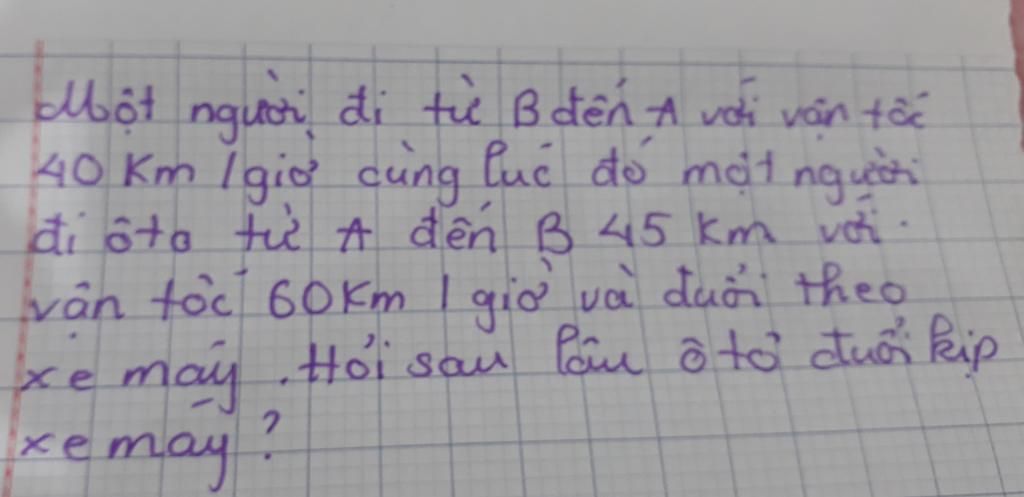 Một người đi từ B đến A với vận tốc
40 Km / giờ cùng lúc đó một người
đi ôto từ A đến B 45 km với
vận tốc 60Km / giờ và đuổi theo
xe máy. Hỏi sau lâu ô tô đuổi kịp
xe máy?